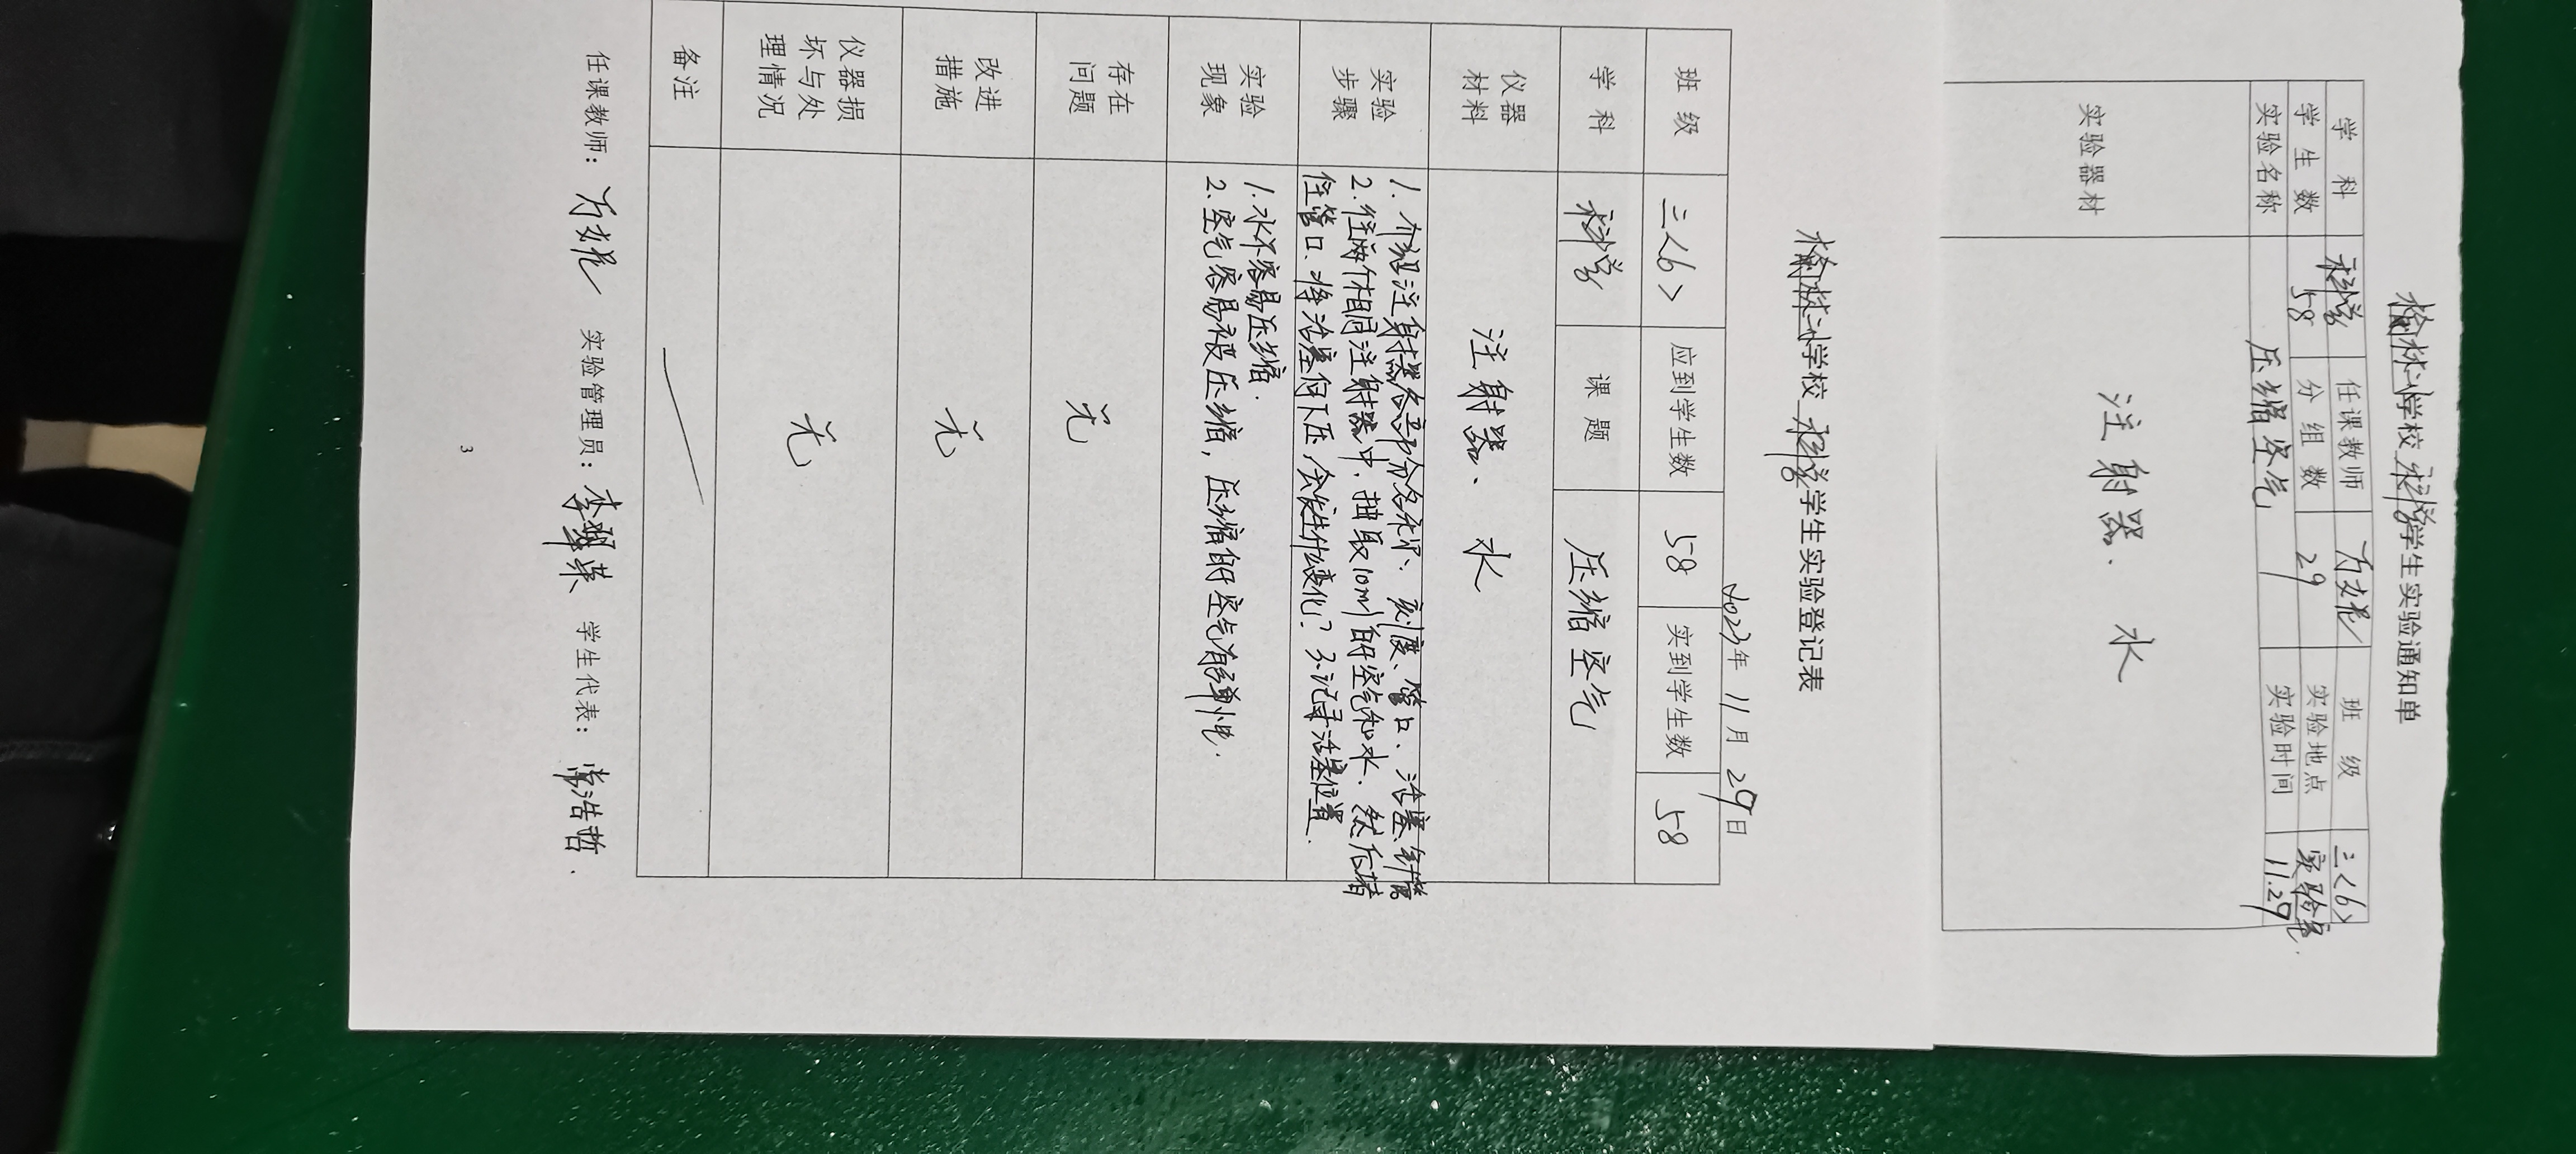 榆林小学校科学学生实验通知单
学 科 科学 任课教师 班 级 三<6>
学 生 数 58 分 组 数 29 实验地点 实验室.
实验名称 压缩空气 实验时间 11.29
实验器材 注射器、水
榆林小学校科学学生实验登记表
2023年 11月 29日
班 级 三<6> 应到学生数 58 实到学生数 58
学 科 科学 课 题 压缩空气
仪器
材料
注射器、水
实验
步骤
1. 介绍注射器各部分名称、刻度、管口、活塞、针管
2. 往两个相同注射器中, 抽取10ml的空气和水、然后堵
住管口、将活塞向下压, 会发生什么变化? 3.记录活塞位置.
实验
现象
1. 水不容易压缩.
2. 空气容易被压缩, 压缩的空气有弹性.
存在
问题
无
改进
措施
无
仪器损
坏与处
理情况
无
备注
任课教师: 实验管理员: 李翠荣 学生代表: 常浩哲.
3